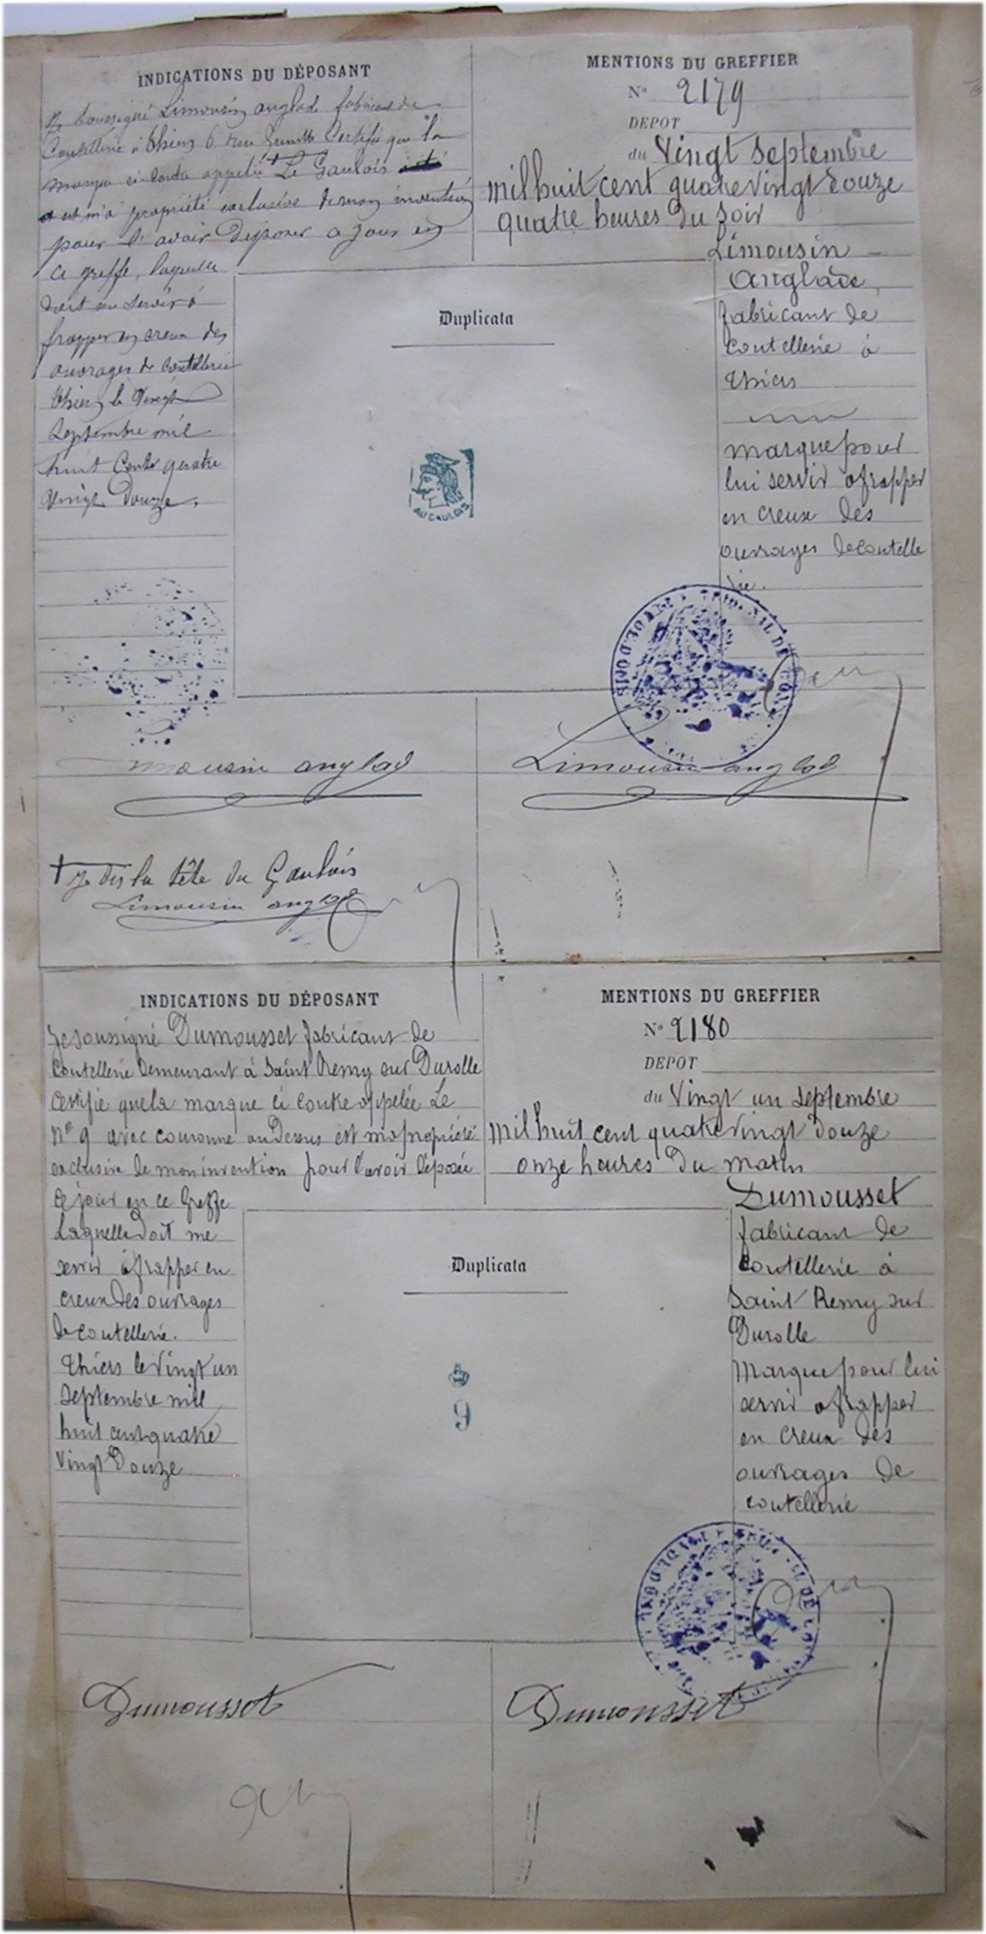 INDICATIONS DU DÉPOSANT
Je soussigné Limousin anglade fabricant de
Coutellerie à Thiers 6 rue Certifie que la
marque ci-contre appelée + Le Gaulois
est ma propriété exclusive de mon invention
pour l'avoir déposer a jour en
ce greffe, laquelle
doit me servir à
frapper en creux des
ouvrages de coutellerie
Thiers le vingt
Septembre mil
huit Cents quatre
vingt Douze.
MENTIONS DU GREFFIER
N° 2179
DEPOT
du Vingt Septembre
mil huit cent quatre vingt douze
quatre heures du soir
Limousin -
Anglade,
fabricant de
coutellerie à
Thiers
marque pour
lui servir a frapper
en creux des
ouvrages de coutelle
rie.
Duplicata
AU GAULOIS
mousin anglad
Limousin anglad
+ Je dis la tête du Gaulois
Limousin anglad
INDICATIONS DU DÉPOSANT
Je soussigné Dumousset fabricant de
coutellerie demeurant à Saint Remy sur Durolle
certifie que la marque ci contre appelée Le
N° 9 avec couronne au dessus est ma propriété
exclusive de mon invention pour l'avoir déposée
ce jour en ce Greffe
Laquelle doit me
servir à frapper en
creux des ouvrages
de coutellerie.
Thiers le vingt un
septembre mil
huit cent quatre
vingt Douze
MENTIONS DU GREFFIER
N° 2180
DEPOT
du Vingt un septembre
mil huit cent quatre vingt douze
onze heures du matin
Dumousset
fabricant de
coutellerie à
Saint Remy sur
Durolle
Marque pour lui
servir a frapper
en creux des
ouvrages de
coutellerie
Duplicata
9
Dumousset
Dumousset